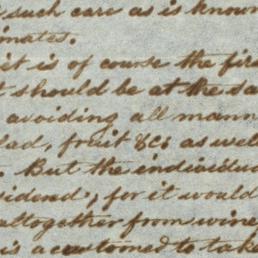 such care as is known
imates.
it is of course the firs
t should be at the sa
avoiding all mann
lad, fruit &c; as well
. But the individu
sidered; for it would
altogether from wine
is accustomed to take